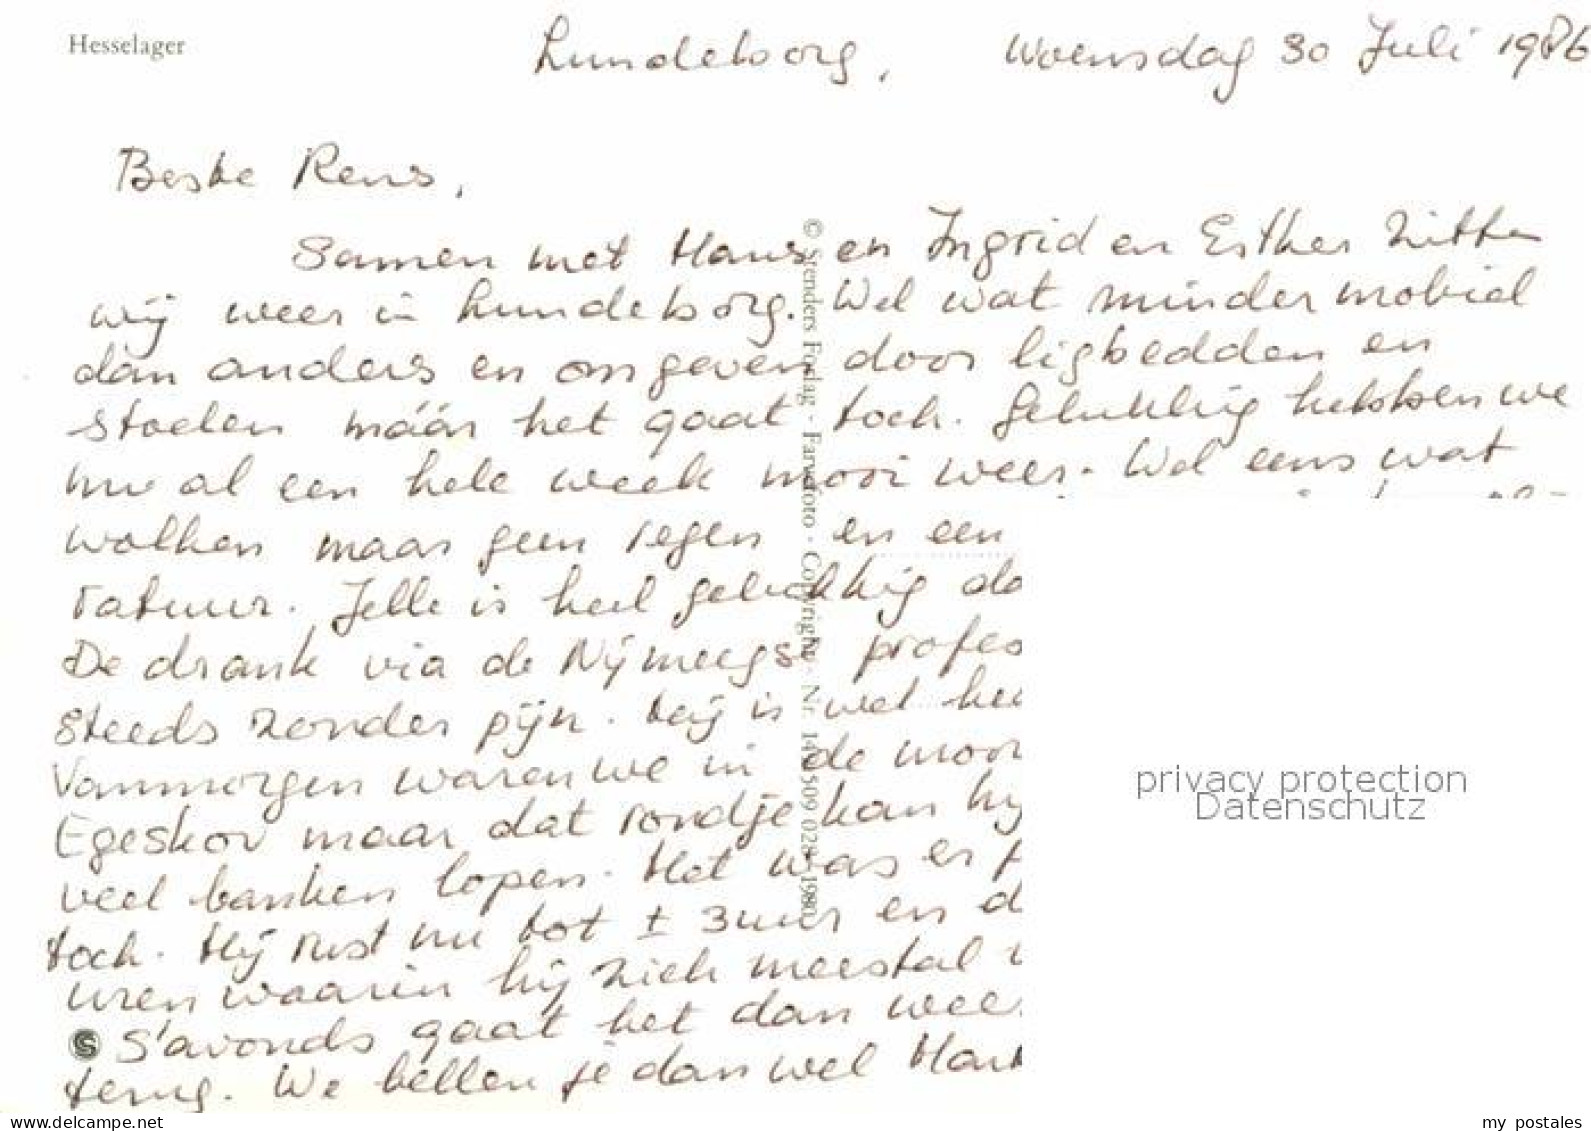 Hesselager
Lundeborg, Woensdag 30 Juli 1986
Beste Rens,
Samen met Hans en Ingrid en Esther zitten
wij weer in Lundeborg. Wel wat minder mobiel
dan anders en omgeven door ligbedden en
stoelen máár het gaat toch. Gelukkig hebben we
nu al een hele week mooi weer. Wel eens wat
wolken maar geen regen en een
ratuur. Jelle is heel gelukkig da
De drank via de Nijmeegse profes
steeds zonder pijn. Hij is wel hee
Vanmorgen waren we in de mooi
Egeskov maar dat rondje kan hij
veel banken lopen. Het was er p
toch. Hij rust nu tot ± 3 uur en d
uren waarin hij zich meestal
S'avonds gaat het dan wee
terug. We bellen je dan wel Har
© Stenders Forlag - Farvefoto - Copyright - Nr. 14 509 028 - 1980
privacy protection
Datenschutz
www.delcampe.net
my_postales